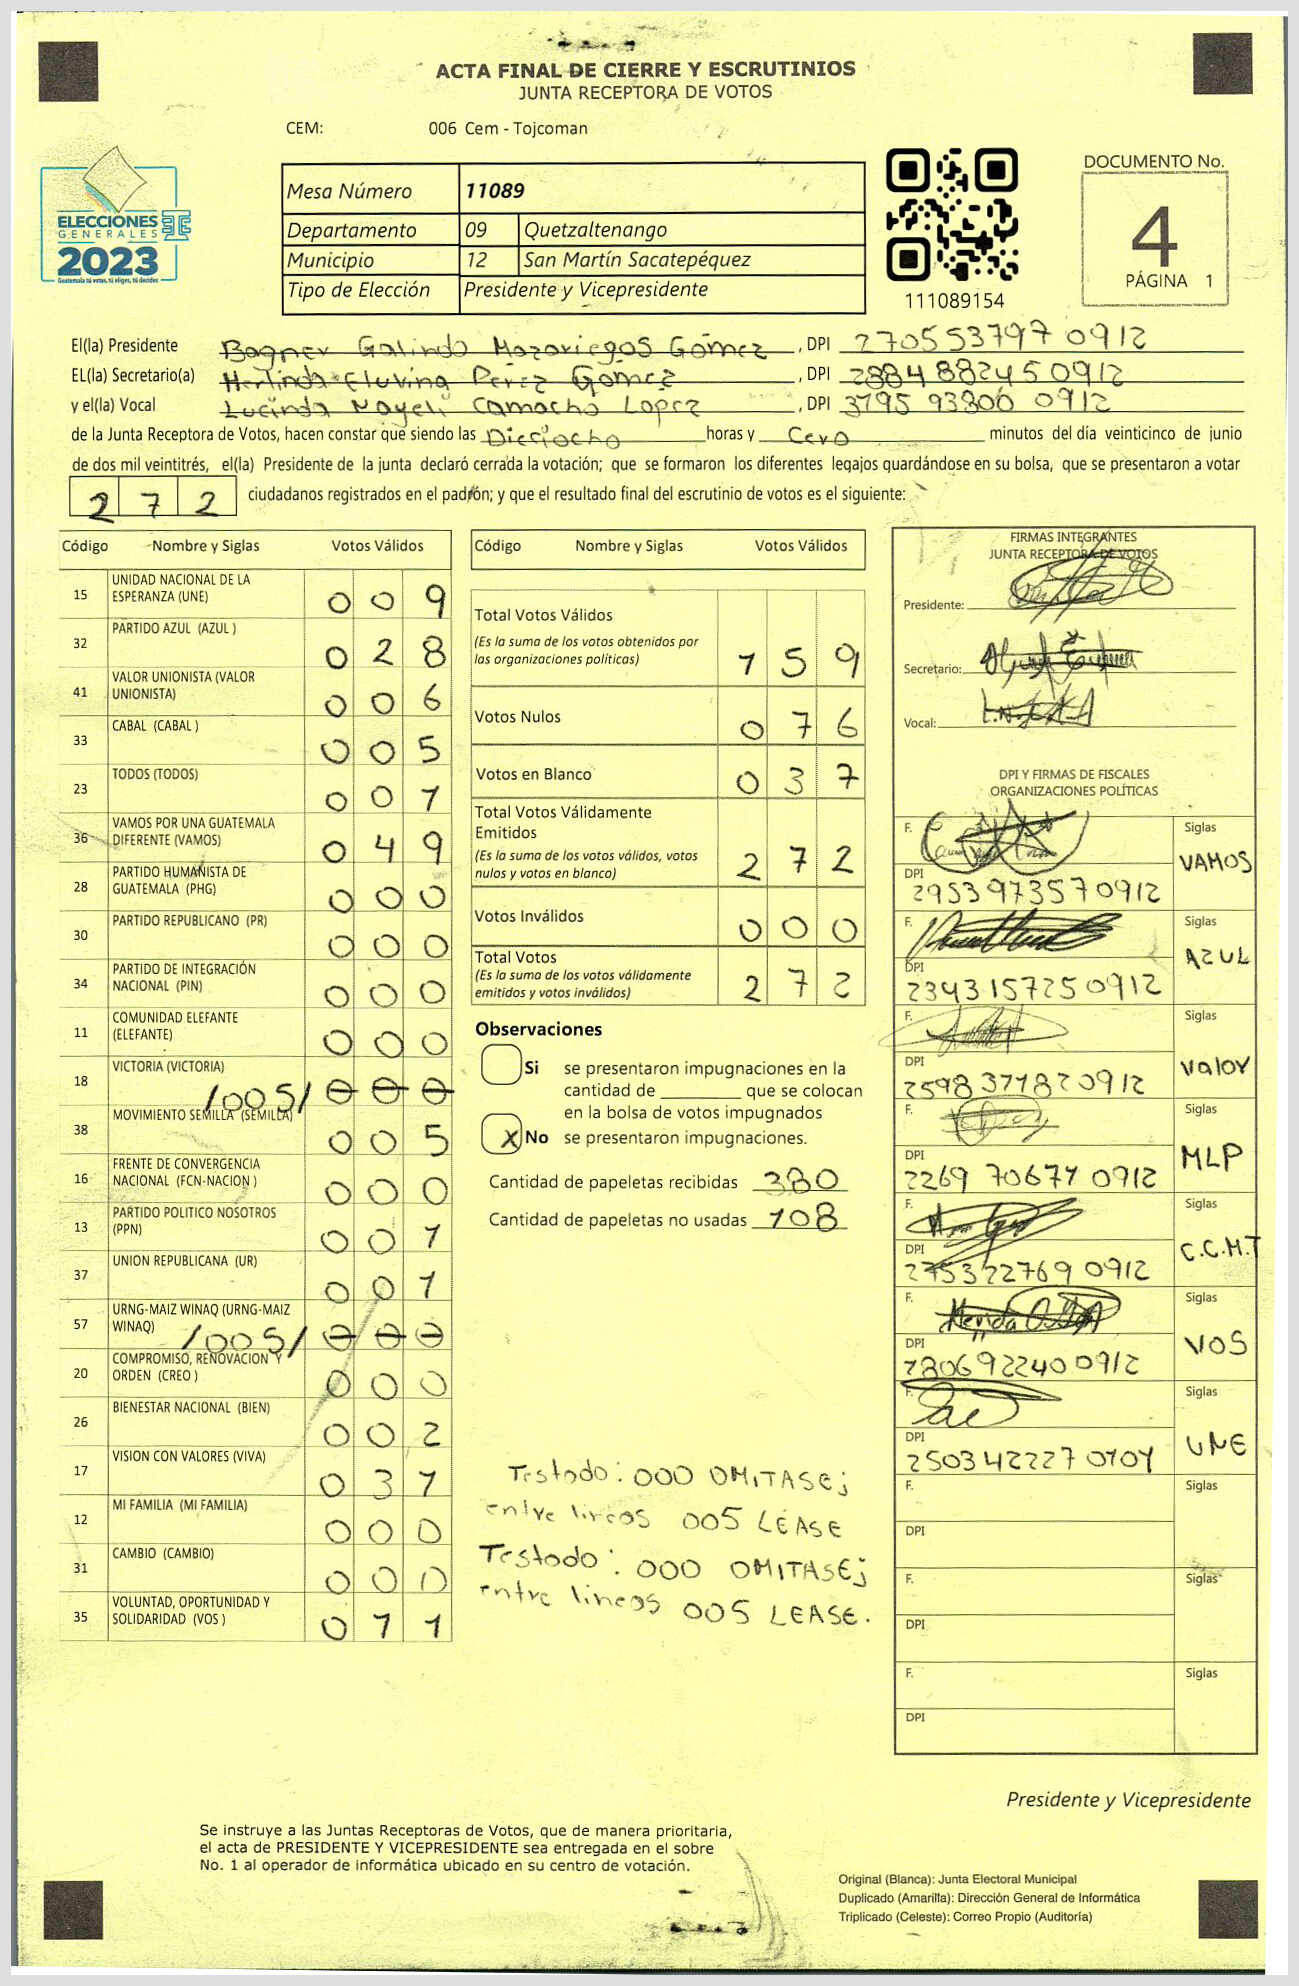 ACTA FINAL DE CIERRE Y ESCRUTINIOS
JUNTA RECEPTORA DE VOTOS
CEM: 006 Cem - Tojcoman
ELECCIONES
GENERALES
2023
Guatemala tú votas, tú eliges, tú decides
Mesa Número 11089
Departamento 09 Quetzaltenango
Municipio 12 San Martín Sacatepéquez
Tipo de Elección Presidente y Vicepresidente
111089154
DOCUMENTO No.
4
PÁGINA 1
El(la) Presidente Bagner Galindo Mazariegos Gómez, DPI 270553797 0912
EL(la) Secretario(a) Herlinda Eluvina Pérez Gómez, DPI 288488245 0912
y el(la) Vocal Lucinda Nayeli Camacho López, DPI 3795 93800 0912
de la Junta Receptora de Votos, hacen constar que siendo las Dieciocho horas y Cero minutos del día veinticinco de junio
de dos mil veintitrés, el(la) Presidente de la junta declaró cerrada la votación; que se formaron los diferentes legajos guardándose en su bolsa, que se presentaron a votar
272 ciudadanos registrados en el padrón; y que el resultado final del escrutinio de votos es el siguiente:
Código Nombre y Siglas Votos Válidos
15 UNIDAD NACIONAL DE LA ESPERANZA (UNE) 009
32 PARTIDO AZUL (AZUL ) 028
41 VALOR UNIONISTA (VALOR UNIONISTA) 006
33 CABAL (CABAL ) 005
23 TODOS (TODOS) 001
36 VAMOS POR UNA GUATEMALA DIFERENTE (VAMOS) 049
28 PARTIDO HUMANISTA DE GUATEMALA (PHG) 000
30 PARTIDO REPUBLICANO (PR) 000
34 PARTIDO DE INTEGRACIÓN NACIONAL (PIN) 000
11 COMUNIDAD ELEFANTE (ELEFANTE) 000
18 VICTORIA (VICTORIA) /005/ 000
38 MOVIMIENTO SEMILLA (SEMILLA) 005
16 FRENTE DE CONVERGENCIA NACIONAL (FCN-NACION ) 000
13 PARTIDO POLITICO NOSOTROS (PPN) 001
37 UNION REPUBLICANA (UR) 001
57 URNG-MAIZ WINAQ (URNG-MAIZ WINAQ) /005/ 000
20 COMPROMISO, RENOVACION Y ORDEN (CREO ) 000
26 BIENESTAR NACIONAL (BIEN) 002
17 VISION CON VALORES (VIVA) 031
12 MI FAMILIA (MI FAMILIA) 000
31 CAMBIO (CAMBIO) 000
35 VOLUNTAD, OPORTUNIDAD Y SOLIDARIDAD (VOS ) 011
Código Nombre y Siglas Votos Válidos
Total Votos Válidos
(Es la suma de los votos obtenidos por
las organizaciones políticas) 159
Votos Nulos 076
Votos en Blanco 037
Total Votos Válidamente
Emitidos
(Es la suma de los votos válidos, votos
nulos y votos en blanco) 272
Votos Inválidos 000
Total Votos
(Es la suma de los votos válidamente
emitidos y votos inválidos) 272
Observaciones
Si se presentaron impugnaciones en la
cantidad de ________ que se colocan
en la bolsa de votos impugnados
X No se presentaron impugnaciones.
Cantidad de papeletas recibidas 380
Cantidad de papeletas no usadas 108
Testado: 000 OMITASE;
entre lineas 005 LEASE
Testado: 000 OMITASE;
entre lineas 005 LEASE.
FIRMAS INTEGRANTES
JUNTA RECEPTORA DE VOTOS
Presidente:
Secretario:
Vocal:
DPI Y FIRMAS DE FISCALES
ORGANIZACIONES POLÍTICAS
F. Siglas VAMOS
DPI 295397357 0912
F. Siglas AZUL
DPI 234315725 0912
F. Siglas Valor
DPI 259837182 0912
F. Siglas MLP
DPI 2269 70671 0912
F. Siglas C.C.M.T
DPI 275322769 0912
F. Siglas VOS
DPI 280692240 0912
F. Siglas UNE
DPI 250342227 0101
F. Siglas
DPI
F. Siglas
DPI
F. Siglas
DPI
Presidente y Vicepresidente
Se instruye a las Juntas Receptoras de Votos, que de manera prioritaria,
el acta de PRESIDENTE Y VICEPRESIDENTE sea entregada en el sobre
No. 1 al operador de informática ubicado en su centro de votación.
Original (Blanca): Junta Electoral Municipal
Duplicado (Amarilla): Dirección General de Informática
Triplicado (Celeste): Correo Propio (Auditoría)